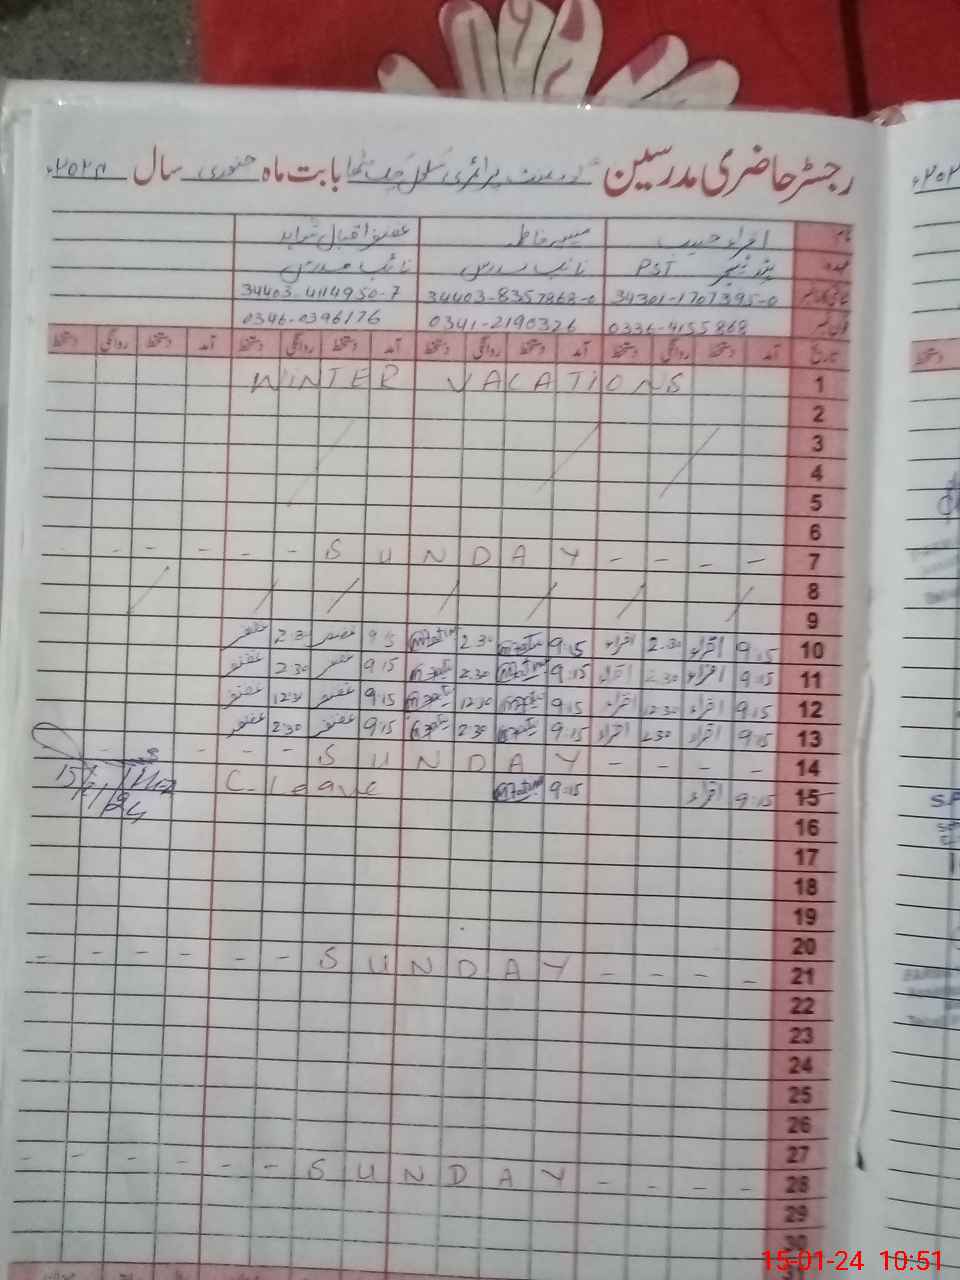 رجسٹر حاضری مدرسین گورنمنٹ پرائمری سکول بابت ماہ جنوری سال ۲۰۲۴ء
نام اقراء حبیب فاطمہ غضنفر اقبال
عہدہ PST نائب مدرس نائب مدرس
34301-1707395-0 34403-8357868-0 34403-4114950-7
فون نمبر 0336-4155868 0341-2190326 0346-0396176
تاریخ آمد دستخط روانگی دستخط آمد دستخط روانگی دستخط آمد دستخط روانگی دستخط آمد دستخط روانگی دستخط
1 WINTER VACATIONS
2
3
4
5
6
7 - - - - S U N D A Y - - - - - -
8
9
10 9:15 اقراء 2:30 اقراء 9:15 2:30 9:15 غضنفر 2:30 غضنفر
11 9:15 اقراء 2:30 اقراء 9:15 2:30 9:15 غضنفر 2:30 غضنفر
12 9:15 اقراء 12:30 اقراء 9:15 12:30 9:15 غضنفر 12:30 غضنفر
13 9:15 اقراء 2:30 اقراء 9:15 2:30 9:15 غضنفر 2:30 غضنفر
14 - - - - S U N D A Y - - - - -
15 9:15 اقراء 9:15 C. Leave
15/1/24
16
17
18
19
20
21 - - - - S U N D A Y - - - - - -
22
23
24
25
26
27
28 - - - - S U N D A Y - - - - - -
29
30
15-01-24 10:51